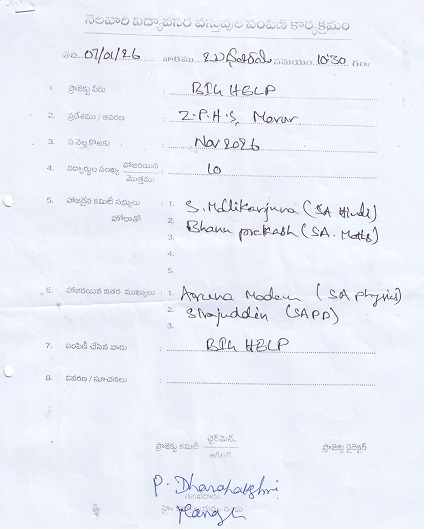 నెలవారీ విద్యావసర వస్తువుల పంపిణీ కార్యక్రమం
తేది. 07/01/26 వారము బుధవారము సమయం. 10:30 గం॥
1. ప్రాజెక్టు పేరు : BIG HELP
2. ప్రదేశము / ఆవరణ : Z.P.H.S, Mavar
3. ఏ నెల కొఱకు : Nov 2026
4. విద్యార్థుల సంఖ్య హాజరయిన / మొత్తము : 10
5. హాజరైన కమిటీ సభ్యులు : 1. S. Mallikarjuna (SA Hindi)
హోదాతో 2. Bhanu prakash (SA. Maths)
3.
4.
5.
6. హాజరయిన ఇతర ముఖ్యులు : 1. Aruna Madam (SA physics)
2. Sirajuddin (SAPD)
3.
7. పంపిణీ చేసిన వారు : BIG HELP
8. వివరణ / సూచనలు :
ప్రాజెక్టు కమిటీ చైర్మెన్ ప్రాజెక్టు డైరెక్టర్
P. Dharahakshri